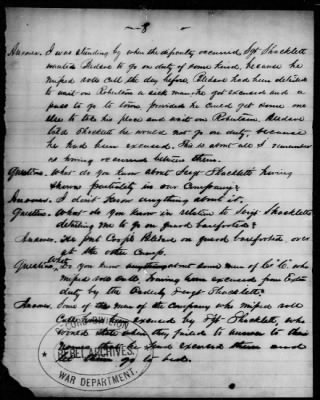 8
Answer. I was standing by when the difficulty occurred Sgt Shacklett
wanted Bledsoe to go on duty of some kind, because he
missed roll call the day before, Bledsoe had been detailed
to wait on Robertson a sick man, he got excused and a
pass to go to town provided he could get some one
else to take his place and wait on Robertson. Bledsoe
told Shacklett he would not go on duty, because
he had been excused. This is about all I remember
as having occurred between them.
Question. What do you know about Sergt Shackletts having
shown partiality in our Company?
Answer. I don't know anything about it.
Question. What do you know in relation to Sergt Shackletts
detailing me to go on guard barefooted?
Answer. He put Corpl Bledsoe on guard barefooted over
at the other camp.
Question. What do you know about some men of Co "C" who
missed roll call, having been excused from Extra
duty by the Orders of Sergt Shacklett?
Answer. Some of the men of the Company who missed roll
Call have been excused by Sgt Shacklett, who
would when they failed to answer to their
names, and excused them and
let them go to bed.
RECORD DIVISION
REBEL ARCHIVES
WAR DEPARTMENT.